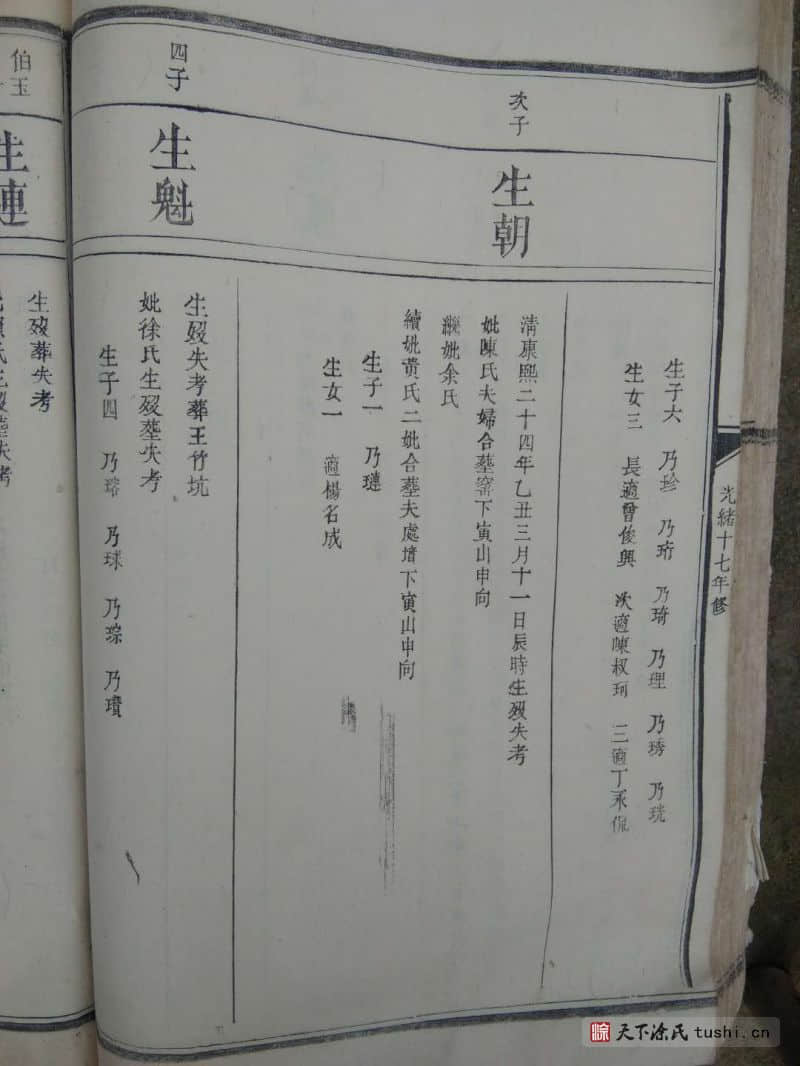 光緒十七年修
生子六 乃珍 乃珩 乃琦 乃理 乃琇 乃珖
生女三 長適曾俊興 次適陳叔珂 三適丁永侃
次子
生朝
清康熙二十四年乙丑三月十一日辰時生歿失考
妣陳氏夫婦合塟窰下寅山申向
繼妣余氏
續妣黃氏二妣合塟夫處墳下寅山申向
生子一 乃璉
生女一 適楊名成
四子
生魁
生歿失考葬王竹坑
妣徐氏生歿塟失考
生子四 乃瑢 乃球 乃琮 乃瓚
伯玉
生連
生歿葬失考
氏生歿塟失考
天下涂氏 tushi.cn